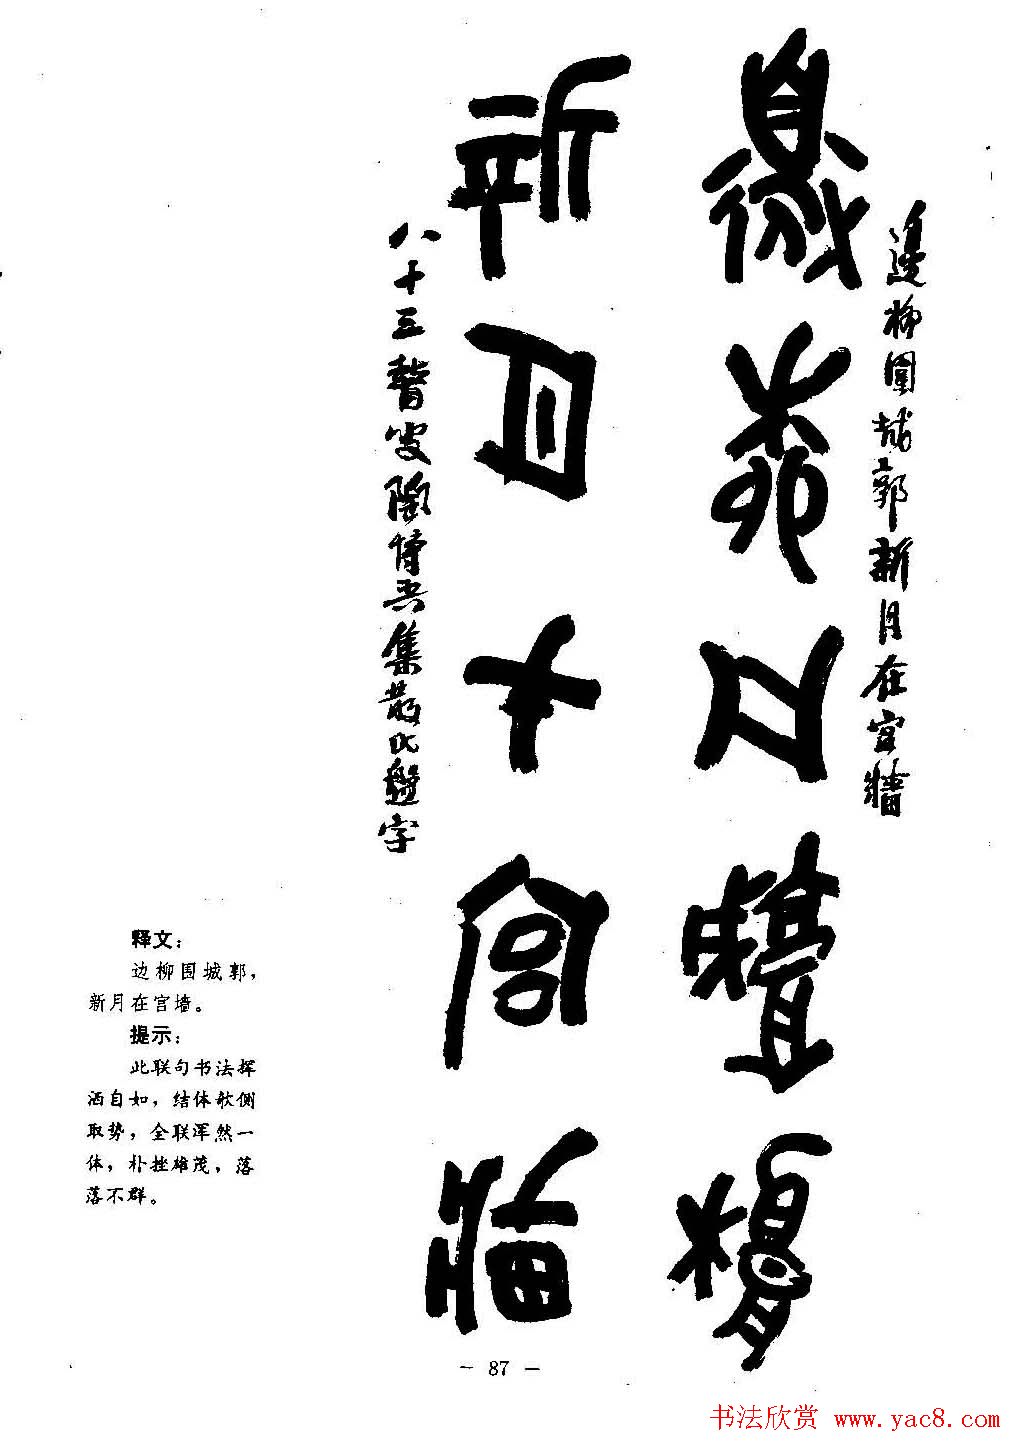 邊柳圍城郭新月在宫牆
邊柳圍城郭
新月在宫牆
八十三瞽叟陶博吾集散氏盤字
释文：
边柳围城郭，
新月在宫墙。
提示：
此联句书法挥
洒自如，结体欹侧
取势，全联浑然一
体，朴拙雄茂，落
落不群。
- 87 -
书法欣赏 www.yac8.com